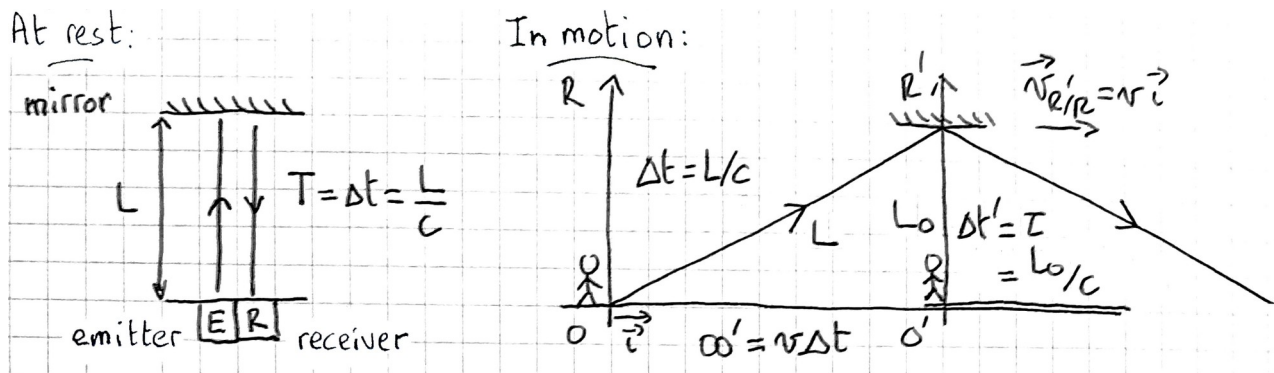 At rest:
mirror
L
T = Δt = L/C
E R
emitter receiver
In motion:
R
R'
v⃗R'/R = v i⃗
Δt = L/C
L
L₀
Δt' = τ
= L₀/C
O
i⃗
OO' = vΔt
O'